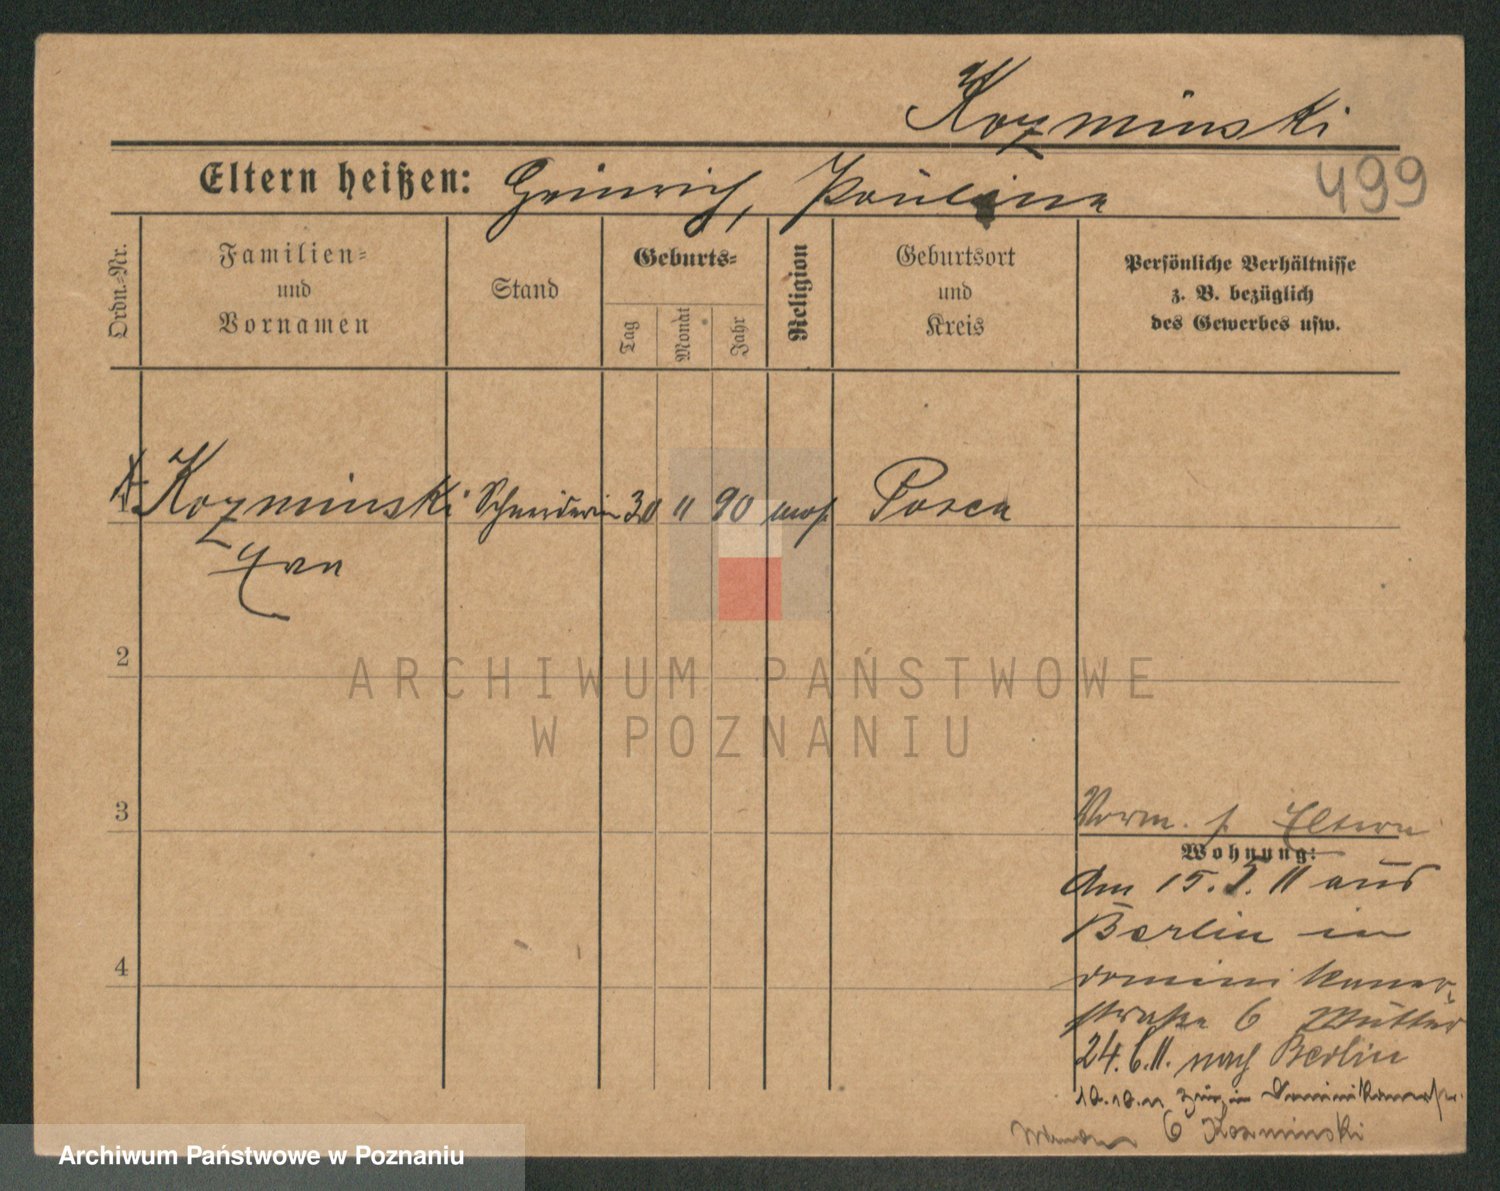 Kozminski
Eltern heißen: Heinrich, Pauline
499
Ordn.-Nr.
Familien-
und
Vornamen
Stand
Geburts-
Tag
Monat
Jahr
Religion
Geburtsort
und
Kreis
Persönliche Verhältnisse
z. B. bezüglich
des Gewerbes usw.
1 Kozminski Schneiderin 30 11 90 mos. Posen
2
3
4
ARCHIWUM PAŃSTWOWE
W POZNANIU
Vorm. s. Eltern
Wohnung:
Am 15. 11 aus
Berlin in
Dominikaner-
straße 6 Mutter
24.6.11. nach Berlin
10.10.11 Dominikanerstr.
6 Kozminski
Archiwum Państwowe w Poznaniu